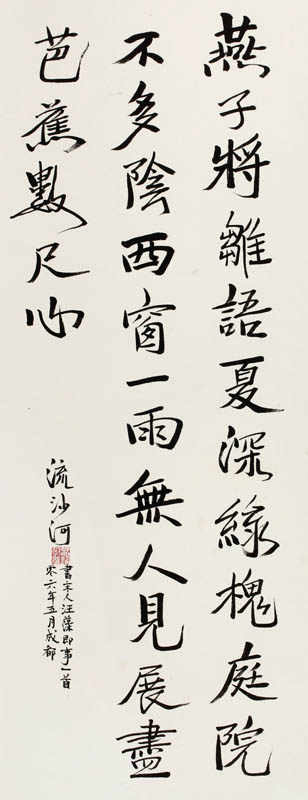 燕子將雛語夏深綠槐庭院
不多陰西窗一雨無人見展盡
芭蕉數尺心
流沙河
書宋人汪藻即事一首
零六年五月成都